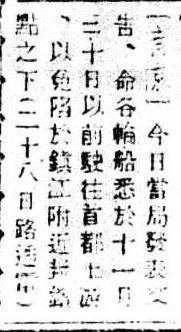 今日當局發表文
告、命各輪船悉於十一月
三十日以前駛往首都上游
、以免陷於鎮江附近封鎖
點之下(二十八日路透電)